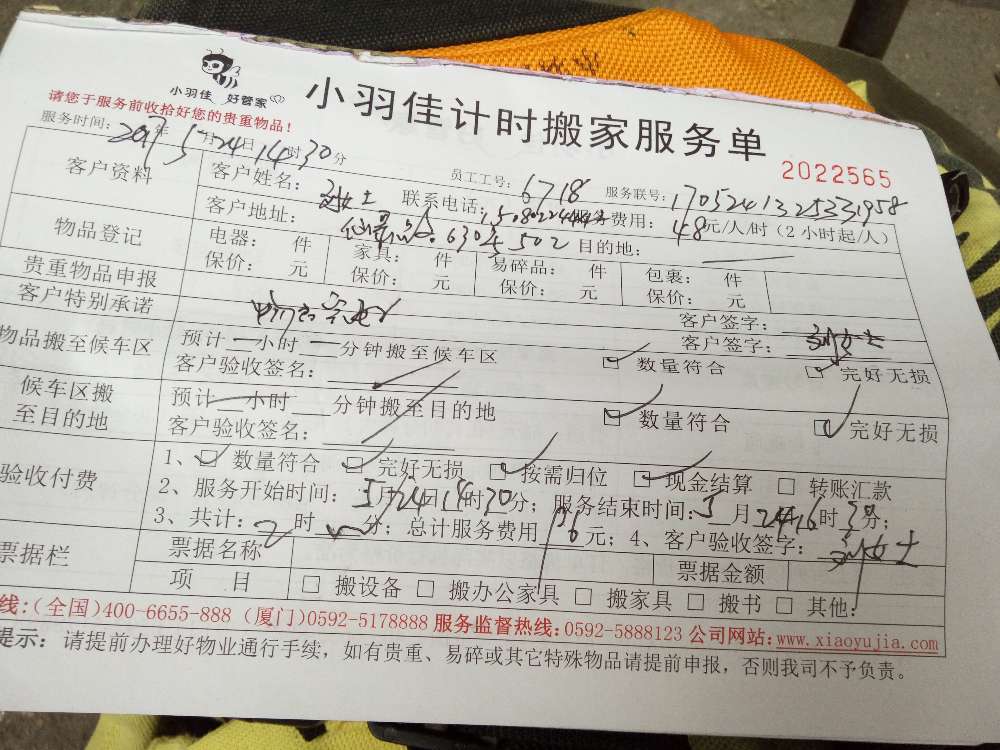 小羽佳 好管家
小羽佳计时搬家服务单
请您于服务前收拾好您的贵重物品！
2022565
服务时间：2017年5月24日14时30分 员工工号：6718 服务联号：1705241325331958
客户资料 客户姓名： 女士 联系电话： 服务费用：48元/人/时（2小时起/人）
客户地址： 目的地：
物品登记 电器： 件 家具： 件 易碎品： 件 包裹： 件
保价： 元 保价： 元 保价： 元 保价： 元
贵重物品申报 客户签字：
客户特别承诺 客户签字： 女士
物品搬至候车区 预计 小时 分钟搬至候车区 数量符合 完好无损
客户验收签名：
候车区搬至目的地 预计 小时 分钟搬至目的地 数量符合 完好无损
客户验收签名：
验收付费 1、 数量符合 完好无损 按需归位 现金结算 转账汇款
2、服务开始时间：5月24日14时30分；服务结束时间：5月24 16时30分；
3、共计：2时 分；总计服务费用 元；4、客户验收签字： 女士
票据栏 票据名称 票据金额
项 目 搬设备 搬办公家具 搬家具 搬书 其他：
线：（全国）400-6655-888（厦门）0592-5178888 服务监督热线：0592-5888123 公司网站：www.xiaoyujia.com
提示：请提前办理好物业通行手续，如有贵重、易碎或其它特殊物品请提前申报，否则我司不予负责。